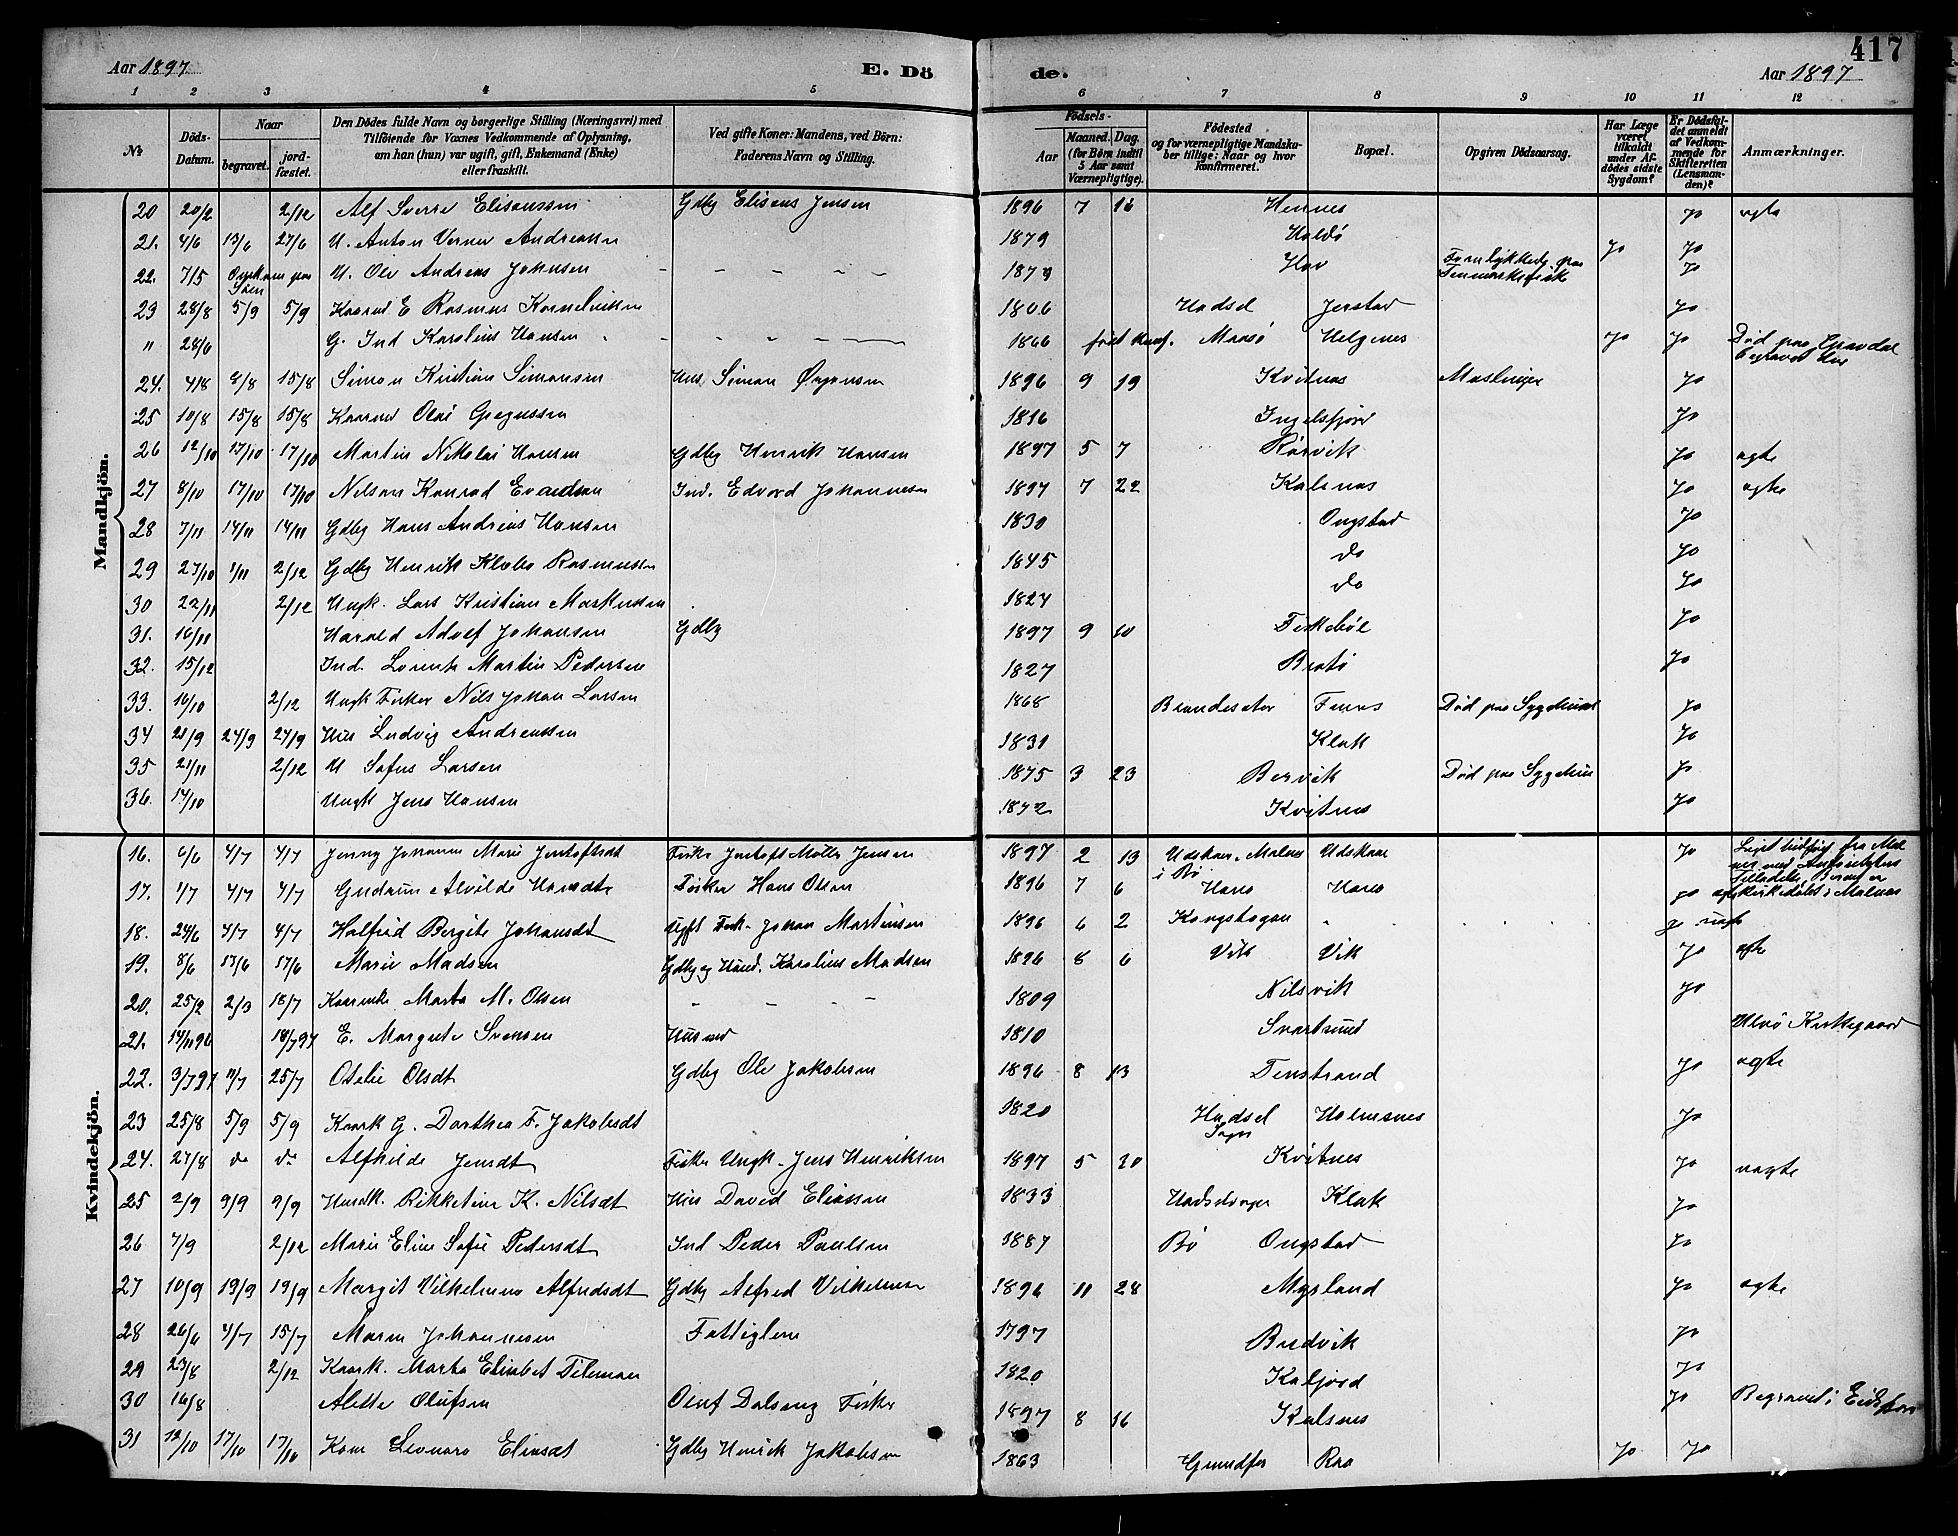 Aar 1897
E. Dö
de.
Aar 1897
417
1 2 3 4 5 6 7 8 9 10 11 12
No
Döds-Datum.
Naar
begravet.
jord-fæstet.
Den Dödes fulde Navn og borgerlige Stilling (Næringsvei) med
Tilföiende for Voxnes Vedkommende af Oplysning,
om han (hun) var ugift, gift, Enkemand (Enke)
eller fraskilt.
Ved gifte Koner: Mandens, ved Börn:
Faderens Navn og Stilling.
Födsels-
Aar
Maaned. Dag.
(for Börn indtil
5 Aar samt
Værnepligtige).
Födested
og for værnepligtige Mandska-
ber tillige: Naar og hvor
konfirmeret.
Bopæl.
Opgiven Dödsaarsag.
Har Læge
været
tilkaldt
under Af-
dödes sidste
Sygdom?
Er Dödsfal-
det anmeldt
af Vedkom-
mende for
Skifteretten
(Lensman-
den)?
Anmærkninger.
Mandkjön.
20 20/2 2/12 Alf Sverre Elisenssen Gdbg Eliseus Jensen 1896 7 Hennes Jo ægte
21. 4/6 13/6 27/6 U. Anton Verner Andreassen 1879 Holdö Jo Jo
22. 7/5 U. Ole Andreas Johnsen Hov Jo
23 28/8 5/9 5/9 Kaarmd E Rasmus Korneliussen 1806 Hadsel Jerstad Jo
" 28/6 G. Ind Karolius Hansen 1866 Maasö Helgenes Jo Jo Död paa Gravdal
Begravet der
24. 4/8 8/8 15/8 Simon Kristian Simonsen Hus Simon 1896 9 19 Kvitnes Meslinger Jo
25 10/8 15/8 15/8 Kaarmd Olai Gregussen 1816 Ingelsfjord Jo
26 12/10 17/10 17/10 Martin Nikolai Hansen Gdbg Henrik Hansen 1897 5 7 Rörvik Jo ægte
27 8/10 17/10 17/10 Nelson Konrad Ind. Edvard Johannesen 1897 7 22 Kalsnes Jo ægte
28 7/11 14/11 14/11 Gdbg Hans Andreas Hansen 1830 Ongstad Jo
29 27/10 1/11 2/12 Gdbg Henrik Klæbo Rasmussen 1845 do Jo
30 22/11 2/12 Ungk. Lars Kristian Markussen 1824 do Jo
31. 16/11 Harald Adolf Johansen Gdbg 1897 9 10 Fiskeböl Jo
32. 15/12 Ind. Lorents Martin Pedersen 1827 Bratö Jo
33. 16/10 2/12 Ungk Fisker Nils Johan Larsen 1868 Brandsæter Finnes Död paa Sygehuset Jo
34 21/9 24/9 27/9 Hus Ludvig Andreassen 1831 Klak Jo
35 21/11 2/12 U Sofus Larsen 1875 3 23 Bervik Död paa Sygehus Jo
36. 17/10 Ungk Jens Hansen Kvitnes Jo
Kvindekjön.
16. 6/6 4/7 4/7 Jenny Johanne Marie Jentoftsdt Fisker Jentoft Möller Jensen 1897 2 13 Udskaar i Malnes Udskaar Jo
i Bö
17. 1/7 4/7 4/7 Gudrun Alvilde Hansdt Fisker Hans Olsen 1896 7 6 Hanö Hanö Jo
18. 24/6 4/7 4/7 Halfrid Bergite Johansdt Ugift Fisk. Johan Martinsen 1896 6 2 Kongshagen
19. 8/6 17/6 17/6 Marie Madsen Gdbg og Hand. Karolius Madsen 1896 8 6 Vik Vik Jo ægte
20. 25/2 2/3 18/7 Kaarenke Marta M. Olsen 1809 Nilsvik Jo
21. 14/11 96 18/7 97 E. Margrete Svensen Husmd 1810 Svartsund Ulvö Kirkegaard
22. 3/7 97 11/7 25/7 Otelie Olsdt Gdbg Ole Jakobsen 1896 8 13 Tenstrand Jo ægte
23 25/8 5/9 5/9 Kaark G. Dorthea F. Jakobsdt 1820 Hadsel Holmsnes Jo
Sogn
24. 27/8 do do Alfhilde Jensdt Fisker Ungk. Jens Henriksen 1897 5 30 Kvitnes Jo uægte
25 2/9 9/9 9/9 Husdk. Rikketine K. Nilsdt Hus David Eliassen 1833 Klak Jo
26 7/9 2/12 Marie Eline Sofie Pedersdt Ind Peder Paulsen 1887 Bö Ongstad Jo
27 10/9 19/9 19/9 Margit Vilhelmine Alfredsdt Gdbg Alfred Vilhelmsen 1896 11 28 Mysland Jo ægte
28 26/6 4/7 15/7 Maren Johannesen Fattiglem 1797 Budvik Jo
29 23/8 2/12 Kaark. Marta Elisabet Tileman 1820 Kaljord Jo
30 16/8 Alette Olufsen Oluf Dalseng Fisker 1897 8 16 Kalsnes Jo Begravet i Eidsfjord
31 12/10 17/10 17/10 Kone Leonora Eliasdt Gdbg Henrik Jakobsen 1863 Grundfør Raa Jo Jo